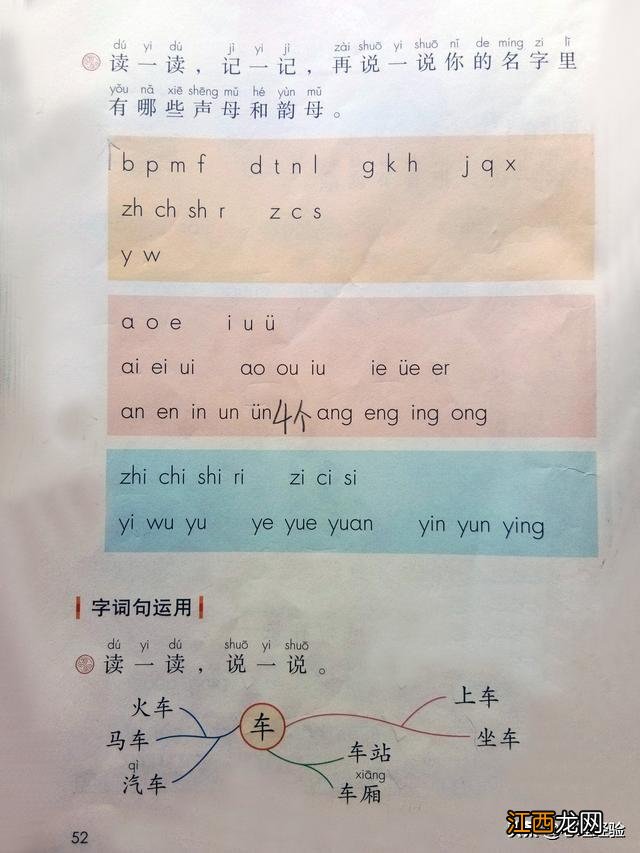 dú yi dú jì yi jì zài shuō yi shuō nǐ de míng zi lǐ
读一读，记一记，再说一说你的名字里
yǒu nǎ xiē shēng mǔ hé yùn mǔ
有哪些声母和韵母。
b p m f d t n l g k h j q x
zh ch sh r z c s
y w
a o e i u ü
ai ei ui ao ou iu ie üe er
an en in un ün 4个 ang eng ing ong
zhi chi shi ri zi ci si
yi wu yu ye yue yuan yin yun ying
字词句运用
dú yi dú shuō yi shuō
读一读，说一说。
火车
上车
车
马车
坐车
车站
qì
汽车
xiāng
车厢
52
江西龙网